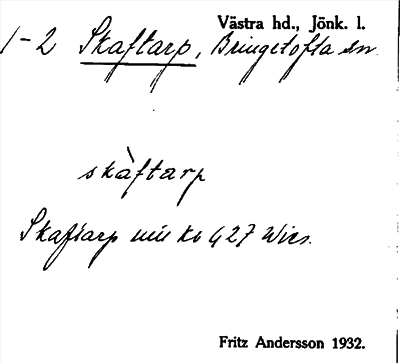 Västra hd., Jönk. l.
1-2 Skaftarp, Bringetofta sn
skàftarp
Skaftarp 427 Wies.
Fritz Andersson 1932.